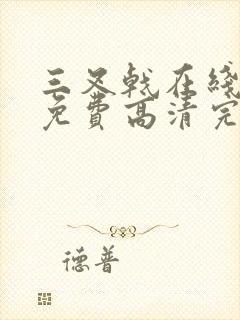 三叉戟在线
免费高清完
德普